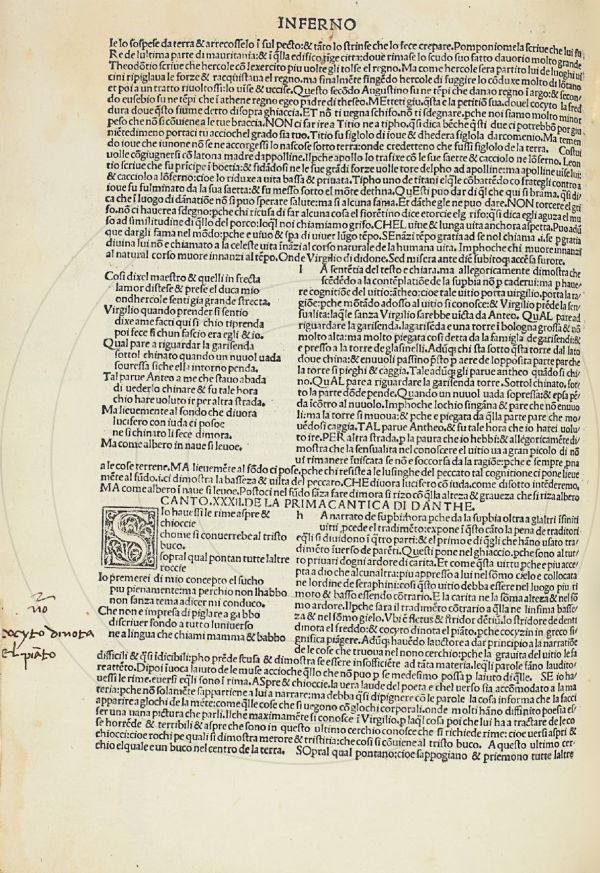 INFERNO
le lo sospese da terra & arrecosselo ĩ sul pecto: & tãto lo strinse che lo fece crepare. Pomponio mela scriue che lui fu
Re de lultima parte di mauritania: & ĩ q̃lla edifico tige citta: doue rimase lo scudo suo facto dauorio molto grande
Theodõtio scriue che hercole cõ lexercito piu uolte gli tolse el regno. Ma come hercole sera partito lui de luoghi ui
cini ripiglaua le forze & racquistaua el regno. ma finalmẽte fingẽdo hercole di fuggire lo cõduxe molto di lõtano
et poi a un tratto riuoltossi: lo uise & uccise. Questo secõdo Augustino fu ne tẽpi che danao regno ĩ argo: & secon/
do eusebio fu ne tẽpi che ĩ athene regno egeo padre di theseo. METteti giu, q̃sta e la petitiõ sua, doue l cocyto la fred
dura doue q̃sto fiume detto disopra ghiaccia. ET nõ ti uegna schifo, nõ ti sdegnare, pche noi siamo molto minor
pche nõ si cõuiene a le tue braccia. NON ci far ire a Titio ne a tipho, q̃si dica bẽche q̃sti due ci potrebbõ por giu
niẽtedimeno portaci tu acciochel grado sia tuo. Titio fu figlolo di ioue & dhedera figlola darcomenio. Ma temen
do ioue che iunone nõ se ne accorgessi lo nascose sotto terra: onde credetteno che fussi figlolo de la terra. Costui
uolle cõgiugnersi cõ latona madre dappolline. Ilpche apollo lo trafixe cõ le sue saette & cacciolo ne lõferno. Leon
tio scriue che fu prĩcipe ĩ boetia: & fidãdosi ne le sue grãdi forze uolle torre delpho ad apolline: ma apolline uise lui:
& cacciolo a lõferno: cioe lo riduxe a uita bassa & priuata. Tipho uno de titani el q̃le cõbattẽdo co frategli contra a
ioue fu fulminato da la sua saetta: & fu messo sotto el mõte dethna. QuesTi puo dar di q̃l che qui si brama, q̃si di/
ca che ĩ luogo di dãnatiõe nõ si puo sperare salute: ma si alcuna fama. Et dãthe gle ne puo dare. NON torcete el gri
fo, nõ ci hauere a sdegno: pche chi ricusa di far alcuna cosa el fiorẽtino dice etorcie elg rifo: q̃si dica egli aguza el mu
so ad similitudine di q̃llo del porco: loq̃l noi chiamiamo grifo. CHEL uiue & lunga uita anchora aspetta. Puo adũ
que dargli fama nel mõdo: pche e uiuo & spa di uiuer lũgo tẽpo. SEnãzi tẽpo gratia ad se nol chiama. i. se p gratia
diuina lui nõ e chiamato a la celeste uita ĩnãzi al corso naturale de la humana uita. Imphoche chi muore innanzi
al natural corso muore innanzi al tẽpo. Onde Virgilio di didone. Sed misera ante diẽ subitoq; accẽsa furore.
Cosi dixel maestro & quelli in frecta
lamor distese & prese el duca mio
ondhercole senti gia grande strecta.
Virgilio quando prender si sentio
dixe a me facti qui si chio tiprenda
poi fece si chun fascio era egli & io.
Qual pare a riguardar la garisenda
sottol chinato quando un nuuol uada
soura essa si che ella intorno penda.
Tal parue Anteo a me che stauo abada
di uederlo chinare & fu tale hora
chio hare uoluto ir per altra strada.
Ma lieuemente al fondo che diuora
lucifero con iuda ci posoe
ne si chinato li fece dimora.
Ma come albero in naue si leuoe.
I A sentẽtia del testo e chiara. ma allegoricamente dimostra che
scẽdẽdo a la cõtẽplatiõe de la supbia nõ p cader ui: ma p haue/
re cognitiõe del uitio: ãtheo: cioe tale uitio porta uirgilio. porta la ra
giõe: pche mõtãdo adosso al uitio si conosce: & Virgilio prẽde la sen
sualita: laq̃le sanza Virgilio sarebbe uicta da Anteo. QuAL pare ad
riguardare la garisenda. la garisẽda e una torre ĩ bologna grossa & nõ
molto alta: ma molto piegata cosi detta da la famigla de garisendi: &
e presso a la torre de glasinelli. Adũq; chi sta sotto q̃sta torre dal lato
doue china: & e nuuoli passino p sto p aere de lopposita parte par che
la torre si pieghi & caggia. Tale adũq; gli parue antheo quãdo si chi/
no. QuAL pare a riguardare la garisenda torre. Sottol chinato. sot/
to la parte dõde pende. Quando un nuuol uada sopressa: & epsa pẽ/
da ĩcõtro al nuuolo. Imphoche lochio singãna & pare che nõ e nuuo
li: ma la torre si muoua: & pche e piegata da q̃lla parte pare che mo/
uẽdosi caggia. TAL parue Antheo. & fu tale hora che io harei uolu/
to ire. PER altra strada. p la paura che io hebbi: & allegoricamẽte di
mostra che la sensualita nel conoscere el uitio ua a gran picolo di nõ
ui rimanere ĩuiscata se nõ e soccorsa da la ragiõe: pche e sempre pna
a le cose terrene. MA lieuemẽte al fõdo ci pose. pche chi resiste a le lusinghe del peccato tal cognitione ci pone lieue
mẽte al fõdo. i. ci dimostra la basseza & uilta del peccato. CHE diuora lucifero cõ iuda. come disotto intẽderemo.
MA come albero ĩ naue si leuoe. Postoci nel fõdo sãza fare dimora si rizo cõ q̃lla alteza & graueza che si riza albero
CANTO .XXXII. DE LA PRIMA CANTICA DI DANTHE.
SIo hauessi le rime aspre &
chioccie
chome si conuerrebe al tristo
buco.
sopral qual pontan tutte laltre
roccie
Io premerei di mio concepto el sucho
piu pienamente: ma perchio non lhabbo
non sanza tema a dicer mi conduco.
Che non e impresa di piglare a gabbo
discriuer fondo a tutto luniuerso
ne a lingua che chiami mamma & babbo
h Anarrato de supbi. hora pche da la supbia oltra a glaltri ĩfiniti
uitii, p cede el tradimẽto: expone ĩ q̃sto cãto la pena de traditori
eq̃li si diuidono ĩ q̃tro parti: & el primo e di q̃lli che hãno usato tra/
dimẽto ĩuerso de parẽti. Questi pone nel ghiaccio. pche sono al tut/
to priuati dogni ardore di carita. Et come q̃sta uirtu pche e piu acce/
pta a dio che alcunaltra: piu appresso a lui nel sõmo cielo e collocata
ne lordine de seraphini: cosi q̃sto uitio debba essere nel luogo piu ri
moto & basso essendo cõtrario. E la carita ne la sõma alteza & nel sõ
mo ardore. Ilphe sara il tradimẽto cõtrario a q̃lla ne linfima basse/
za & nel sõmo gielo. Vbi ẽ fletus & stridor dẽtiũ. lo stridore de denti
dimora el freddo: & cocyto dinota el piãto. pche cocyzin in greco si/
gnifica piãgere. Adũq; hauẽdo lauctore a dar principio a la narratiõe
de le cose che truoua nel nono cerchio: pche la grauita del uitio le fa
difficili & q̃si ĩdicibili: pho prẽde scusa & dimostra se essere insofficiẽte ad tãta materia. leq̃li parole fãno laudito/
re attẽto. Dipoi ĩuoca laiuto de le muse acciochequello che nõ puo p se medesimo possa p laiuto di q̃lle. SE io ha/
uessi le rime. euersi eq̃li sono ĩ rima. ASpre & chioccie. la uera laude del poeta e chel uerso sia accõmodato a la ma
teria: pche nõ solamẽte sappartiene a lui a narrare: ma debba q̃si dipignere cõ le parole la cosa informa che la facci
apparire a glochi de la mẽte: come q̃lle cose che si uegono cõ glochi corporali. onde molti hãno diffinito poesia es/
ser una uana pictura che parli. Ilche maximamẽte si conosce ĩ Virgilio. p laq̃l cosa poi che lui ha a tractare de loco
se horrẽde & terribili & aspre che sono in questo ultimo cerchio conosce che si richiede rime: cioe uersi aspri &
chiocci: cioe rochi pe quali si dimostra merore & tristitia: che cosi si cõuiene al tristo buco. A questo ultimo cer/
chio el quale e un buco nel centro de la terra. SOpral qual pontano: cioe sappogiano & priemono tutte laltre
cocyto dinota
el piãto